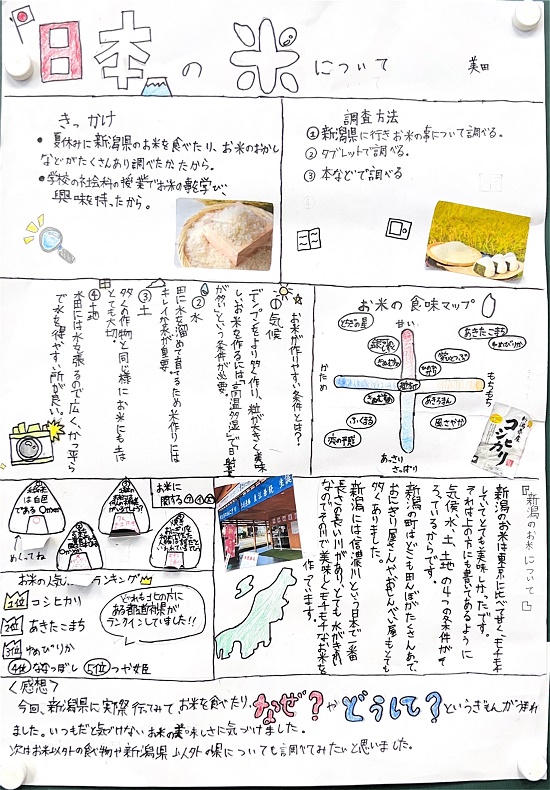 日本の米について
美田
きっかけ
・夏休みに新潟県のお米を食べたり、お米のおかし
などがたくさんあり調べたかったから。
・学校の社会科の授業でお米の事を学び、
興味を持ったから。
調査方法
①新潟県に行きお米の事について調べる。
②タブレットで調べる。
③本などで調べる
お米が作りやすい条件とは?
①気候
デンプンをより多く作り、粒が大きく美味
しいお米を作るには「高温多湿」で日射量
が多いという条件が必要。
②水
田に水を溜めて育てるため米作りには
キレイな水が重要
③土
多くの作物と同じ様にお米にも土は
とても大切。
④土地
水田には水を張るので広く、かつ平ら
で水を得やすい所が良い。
お米の食味マップ
甘い
かため
もちもち
あっさり
さっぱり
あきたこまち
ゆめぴりか
つや姫
あきろまん
風さやか
ふくまる
新潟県産
コシヒカリ
お米に
関する
は白色
である
めくってね
お米の人気ランキング
1位 コシヒカリ
2位 あきたこまち
3位 ゆめぴりか
4位 ななつぼし 5位 つや姫
どれも上の方に
都道府県が
ランクインしていました!!
『新潟のお米について』
新潟のお米は東京に比べて甘く、モチモチ
していてとても美味しかったです。
それは上の方にも書いてあるように
気候、水、土、土地の4つの条件がそ
ろっているからです。
新潟の町はどこも田んぼがたくさんあって、
おにぎり屋さんやおせんべい屋もとても
多くありました。
新潟には信濃川という日本で一番
長さの長い川があり、とても水がきれい
なのでその川で美味しくモチモチなお米を
作っています。
<感想>
今回、新潟県に実際行ってみてお米を食べたり、なぜ?やどうして?というぎもんが生まれ
ました。いつもだと気づけないお米の美味しさに気づけました。
次はお米以外の食べ物や新潟県以外の県についても調べてみたいと思いました。